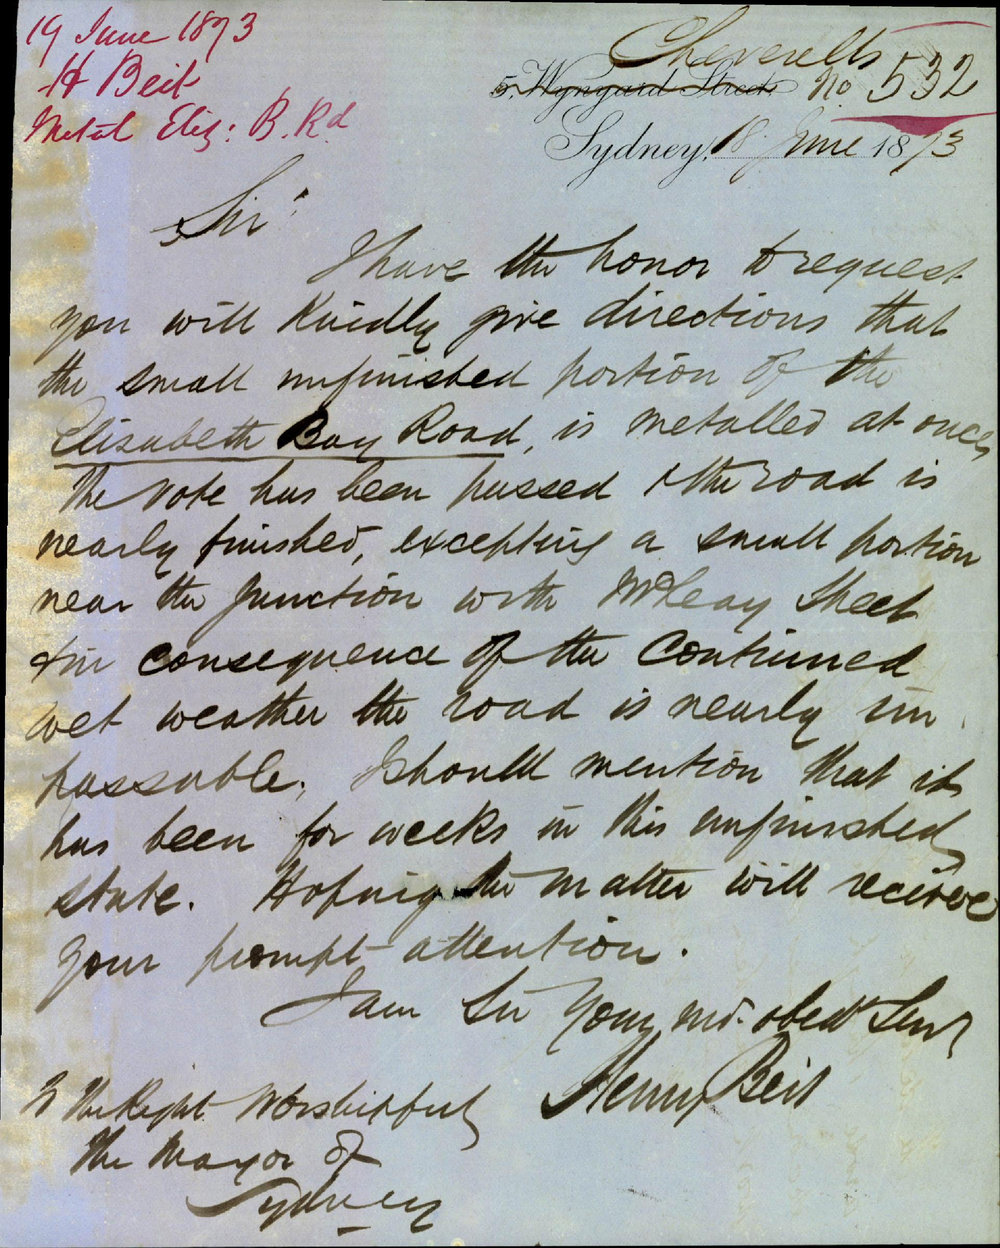 19 June 1873
H Beit
Metal Eliz: B. Rd
Cheverells
5, Wynyard Street No 532
Sydney, 18 June 1873
Sir
I have the honor to request
you will kindly give directions that
the small unfinished portion of the
Elisabeth Bay Road, is metalled at once,
The vote has been passed & the road is
nearly finished, excepting a small portion
near the junction with McLeay Street
& in consequence of the continued
wet weather the road is nearly im
passable. I should mention that it
has been for weeks in this unfinished
state. Hoping the matter will receive
your prompt attention.
I am Sir Your mt. obedt Servt
Henry Beit
To The Right Worshipful
The Mayor of
Sydney